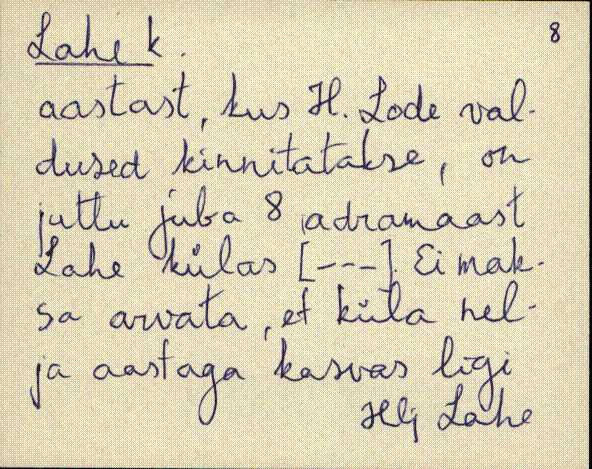 8
Lahe k.
aastast, kus H. Lode val-
dused kinnitatakse, on
juttu juba 8 adramaast
Lahe külas [---]. Ei mak-
sa arvata, et küla nel-
ja aastaga kasvas ligi
Hlj Lahe